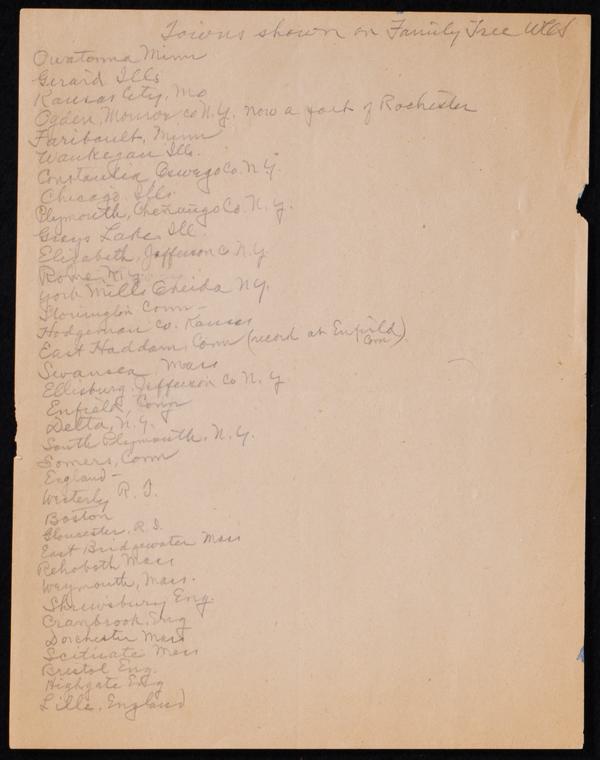 Towns shown on Family Tree
Owatonna Minn
Gerard Ills
Kansas City, Mo
Ogden, Monroe co N.Y. now a part of Rochester
Faribault, Minn
Waukegan Ills.
Constantia, Oswego Co. N.Y.
Chicago, Ills.
Plymouth, Chenango Co. N.Y.
Grays Lake, Ill.
Elizabeth, Jefferson Co N.Y.
Rome, N.Y.
York Mills Oneida N.Y.
Stonington Conn -
Hodgeman Co. Kansas
East Haddam, Conn (record at Enfield Conn)
Swansea, Mass
Ellisburg, Jefferson Co N.Y
Enfield, Conn
Delta, N.Y.
South Plymouth, N.Y.
Somers, Conn
England -
Westerly R.I.
Boston
Gloucester, R.I.
East Bridgewater Mass
Rehoboth Mass
Weymouth, Mass.
Shrewsbury Eng.
Cranbrook, Eng
Dorchester Mass
Scituate Mass
Bristol Eng.
Highgate Eng
Lille, England